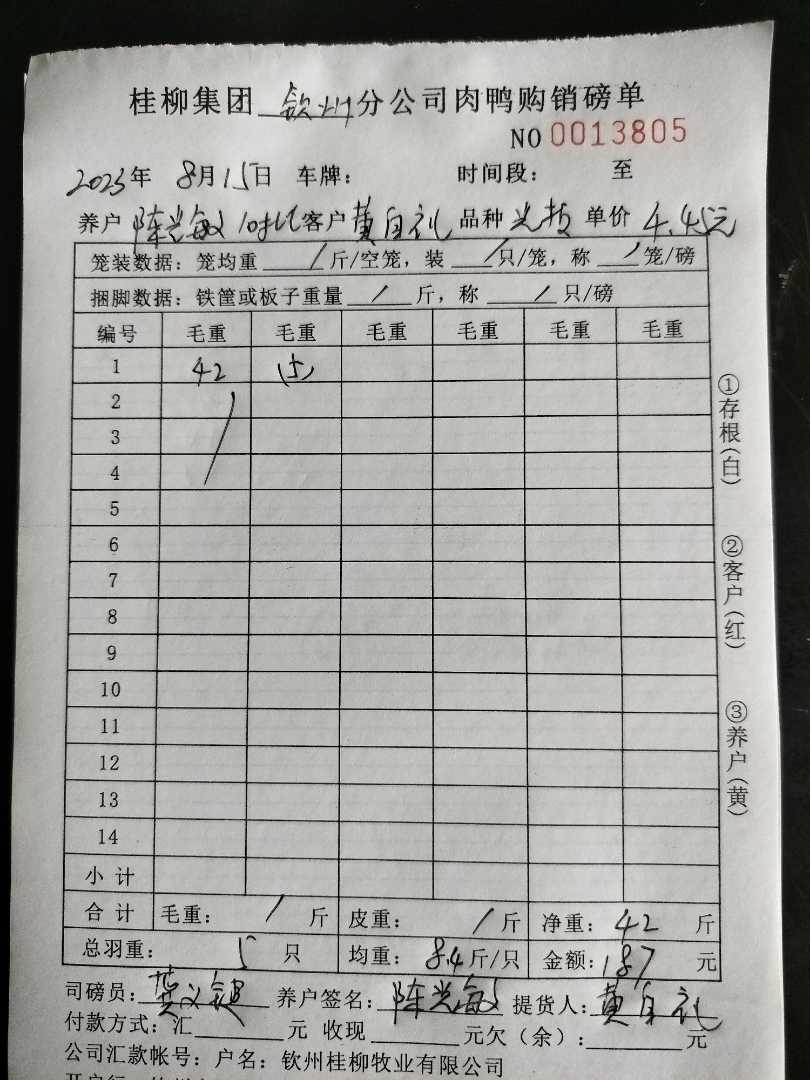 桂柳集团 钦州 分公司肉鸭购销磅单
NO 0013805
2023年 8月15日 车牌: 时间段: 至
养户 陈兴敏 客户 黄自礼 品种 单价 4.45元
笼装数据: 笼均重 / 斤/空笼, 装 / 只/笼, 称 / 笼/磅
捆脚数据: 铁筐或板子重量 / 斤, 称 / 只/磅
编号 毛重 毛重 毛重 毛重 毛重 毛重
1 42 (5)
2
3
4
5
6
7
8
9
10
11
12
13
14
小计
合计 毛重: / 斤 皮重: / 斤 净重: 42 斤
总羽重: 5 只 均重: 8.4斤/只 金额: 187 元
司磅员: 黄义健 养户签名: 陈兴敏 提货人: 黄自礼
付款方式: 汇 元 收现 元欠(余): 元
公司汇款帐号: 户名: 钦州桂柳牧业有限公司
①存根(白)
②客户(红)
③养户(黄)